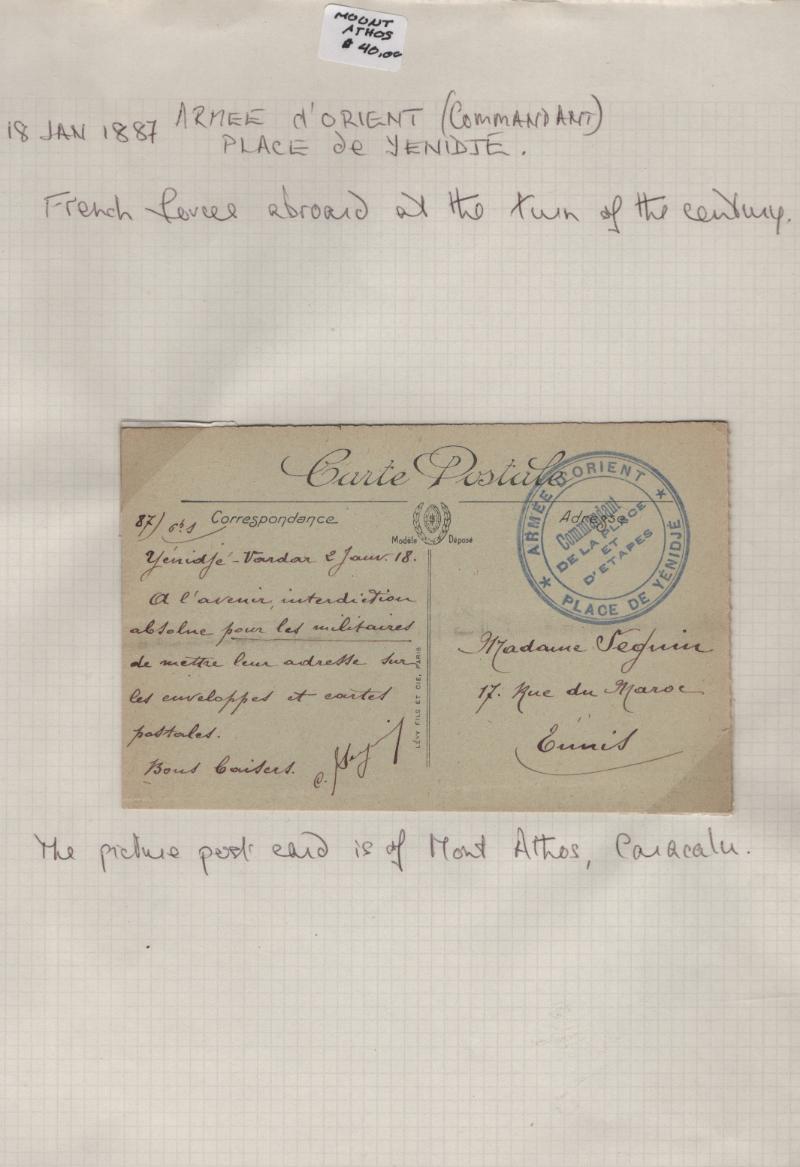 MOUNT
ATHOS
$ 40,00
18 JAN 1887 ARMEE d'ORIENT (COMMANDANT)
PLACE de YENIDJÉ.
French forces abroad at the turn of the century.
Carte Postale
87)
Correspondance
Modèle Déposé
Adresse
ARMÉE D'ORIENT
Commandant
DE LA PLACE
ET
D'ETAPES
PLACE DE YÉNIDJÉ
Yénidjé-Vardar 2 Janv. 18.
A l'avenir, interdiction
absolue pour les militaires
de mettre leur adresse sur
les enveloppes et cartes
postales.
Bons baisers.
LÉVY FILS ET CIE, PARIS
Madame Seguin
17. Rue du Maroc
The picture post card is of Mont Athos, Caracalu.